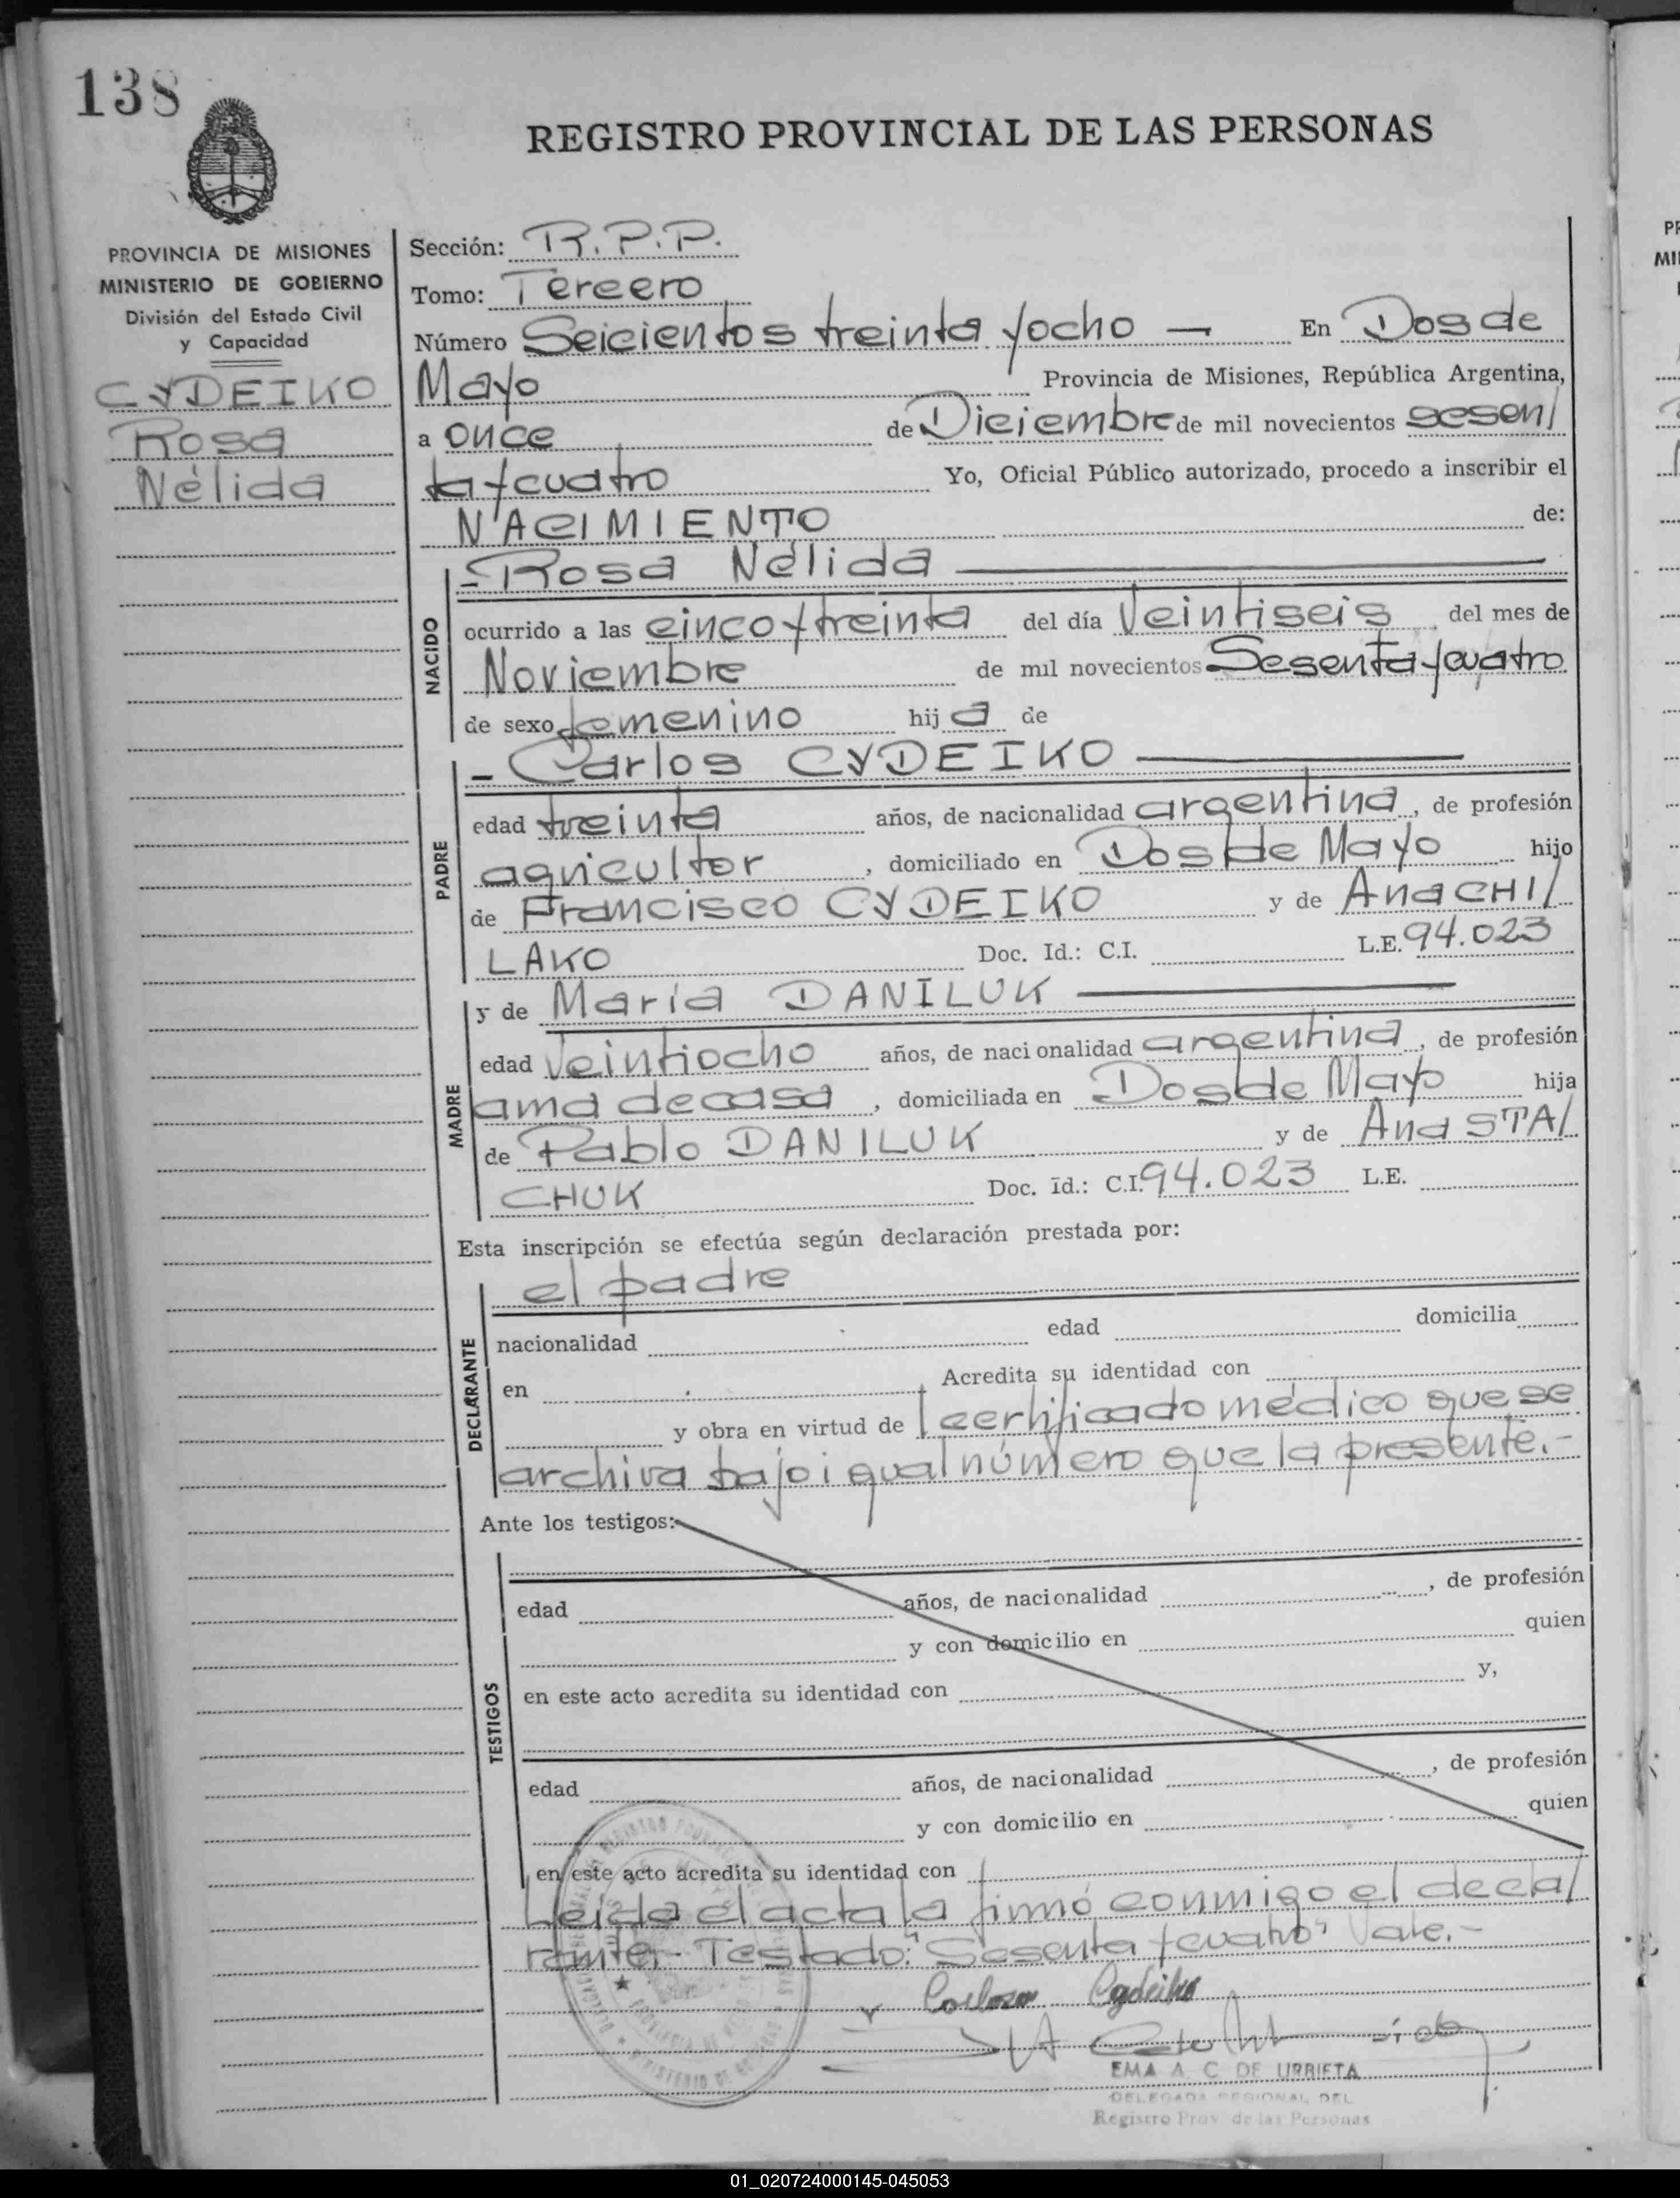 138
REGISTRO PROVINCIAL DE LAS PERSONAS
PROVINCIA DE MISIONES
MINISTERIO DE GOBIERNO
División del Estado Civil
y Capacidad
CYDEIKO
Rosa
Nélida
Sección: R.P.P.
Tomo: Tercero
Número Seicientos treinta y ocho — En Dos de
Mayo Provincia de Misiones, República Argentina,
a once de Diciembre de mil novecientos sesen/
ta y cuatro Yo, Oficial Público autorizado, procedo a inscribir el
NACIMIENTO de:
- Rosa Nélida
NACIDO
ocurrido a las cinco y treinta del día Veintiseis del mes de
Noviembre de mil novecientos Sesenta y cuatro
de sexo femenino hij a de
PADRE
- Carlos CYDEIKO
edad treinta años, de nacionalidad argentina, de profesión
agricultor, domiciliado en Dos de Mayo hijo
de Francisco CYDEIKO y de Ana CHI/
LAKO Doc. Id.: C.I. L.E. 94.023
MADRE
y de María DANILUK
edad Veintiocho años, de nacionalidad argentina, de profesión
ama de casa, domiciliada en Dos de Mayo hija
de Pablo DANILUK y de Ana STA/
CHUK Doc. id.: C.I. 94.023 L.E.
Esta inscripción se efectúa según declaración prestada por:
DECLARANTE
el padre
nacionalidad edad domicilia
en Acredita su identidad con
y obra en virtud de certificado médico que se
archiva bajo igual número que la presente.-
Ante los testigos:
TESTIGOS
edad años, de nacionalidad , de profesión
y con domicilio en quien
en este acto acredita su identidad con y,
edad años, de nacionalidad , de profesión
y con domicilio en quien
en este acto acredita su identidad con
Leída el acta la firmó conmigo el decla/
rante.- Testado: "Sesenta y cuatro" Vale.-
Carlos Cydeiko
EMA A. C. DE URRIETA
DELEGADA REGIONAL DEL
Registro Prov. de las Personas
01_020724000145-045053